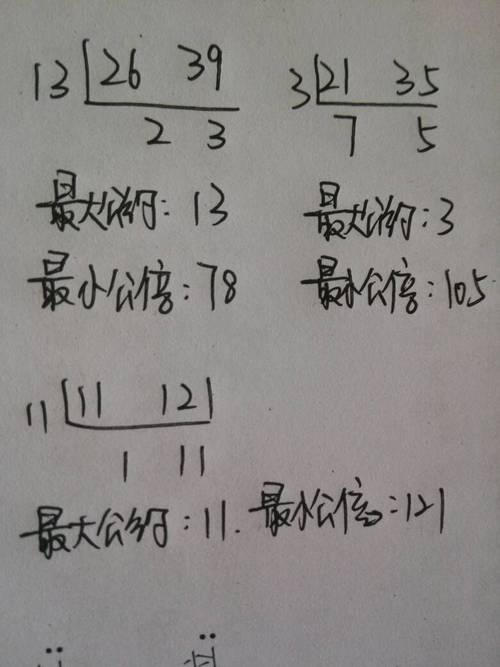 13 26 39 3 21 35
2 3 7 5
最大公约: 13 最大公约: 3
最小公倍: 78 最小公倍: 105
11 11 121
1 11
最大公约: 11. 最小公倍: 121